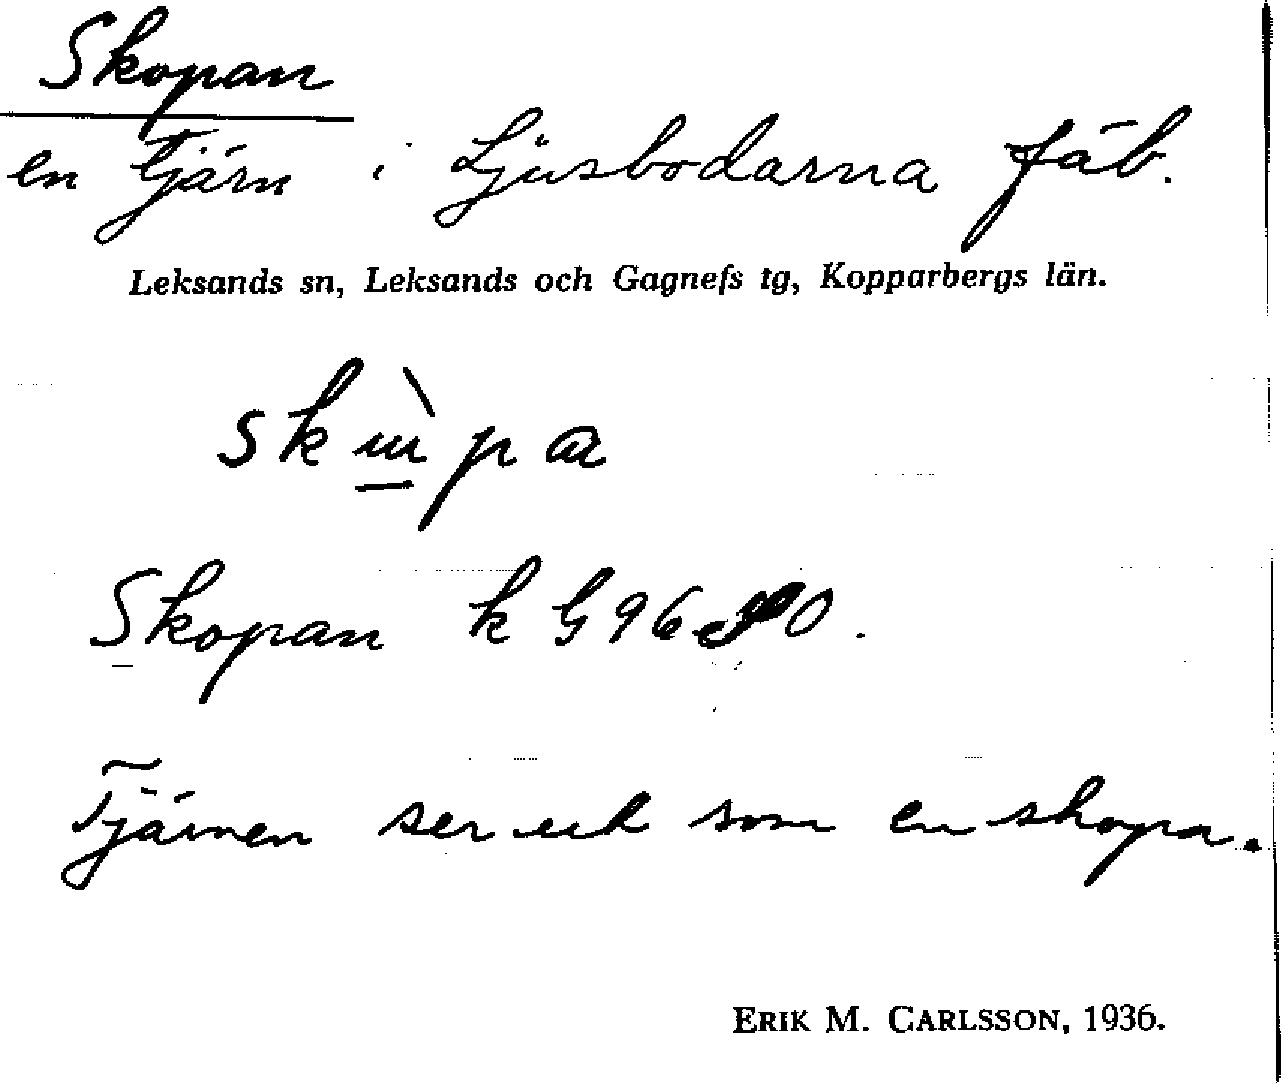 Skopan
en tjärn i Ljusbodarna fäb.
Leksands sn, Leksands och Gagnefs tg, Kopparbergs län.
skɯ̱̀pa
Skopan k G 96 0.
Tjärnen ser ut som en skopa.
ERIK M. CARLSSON, 1936.